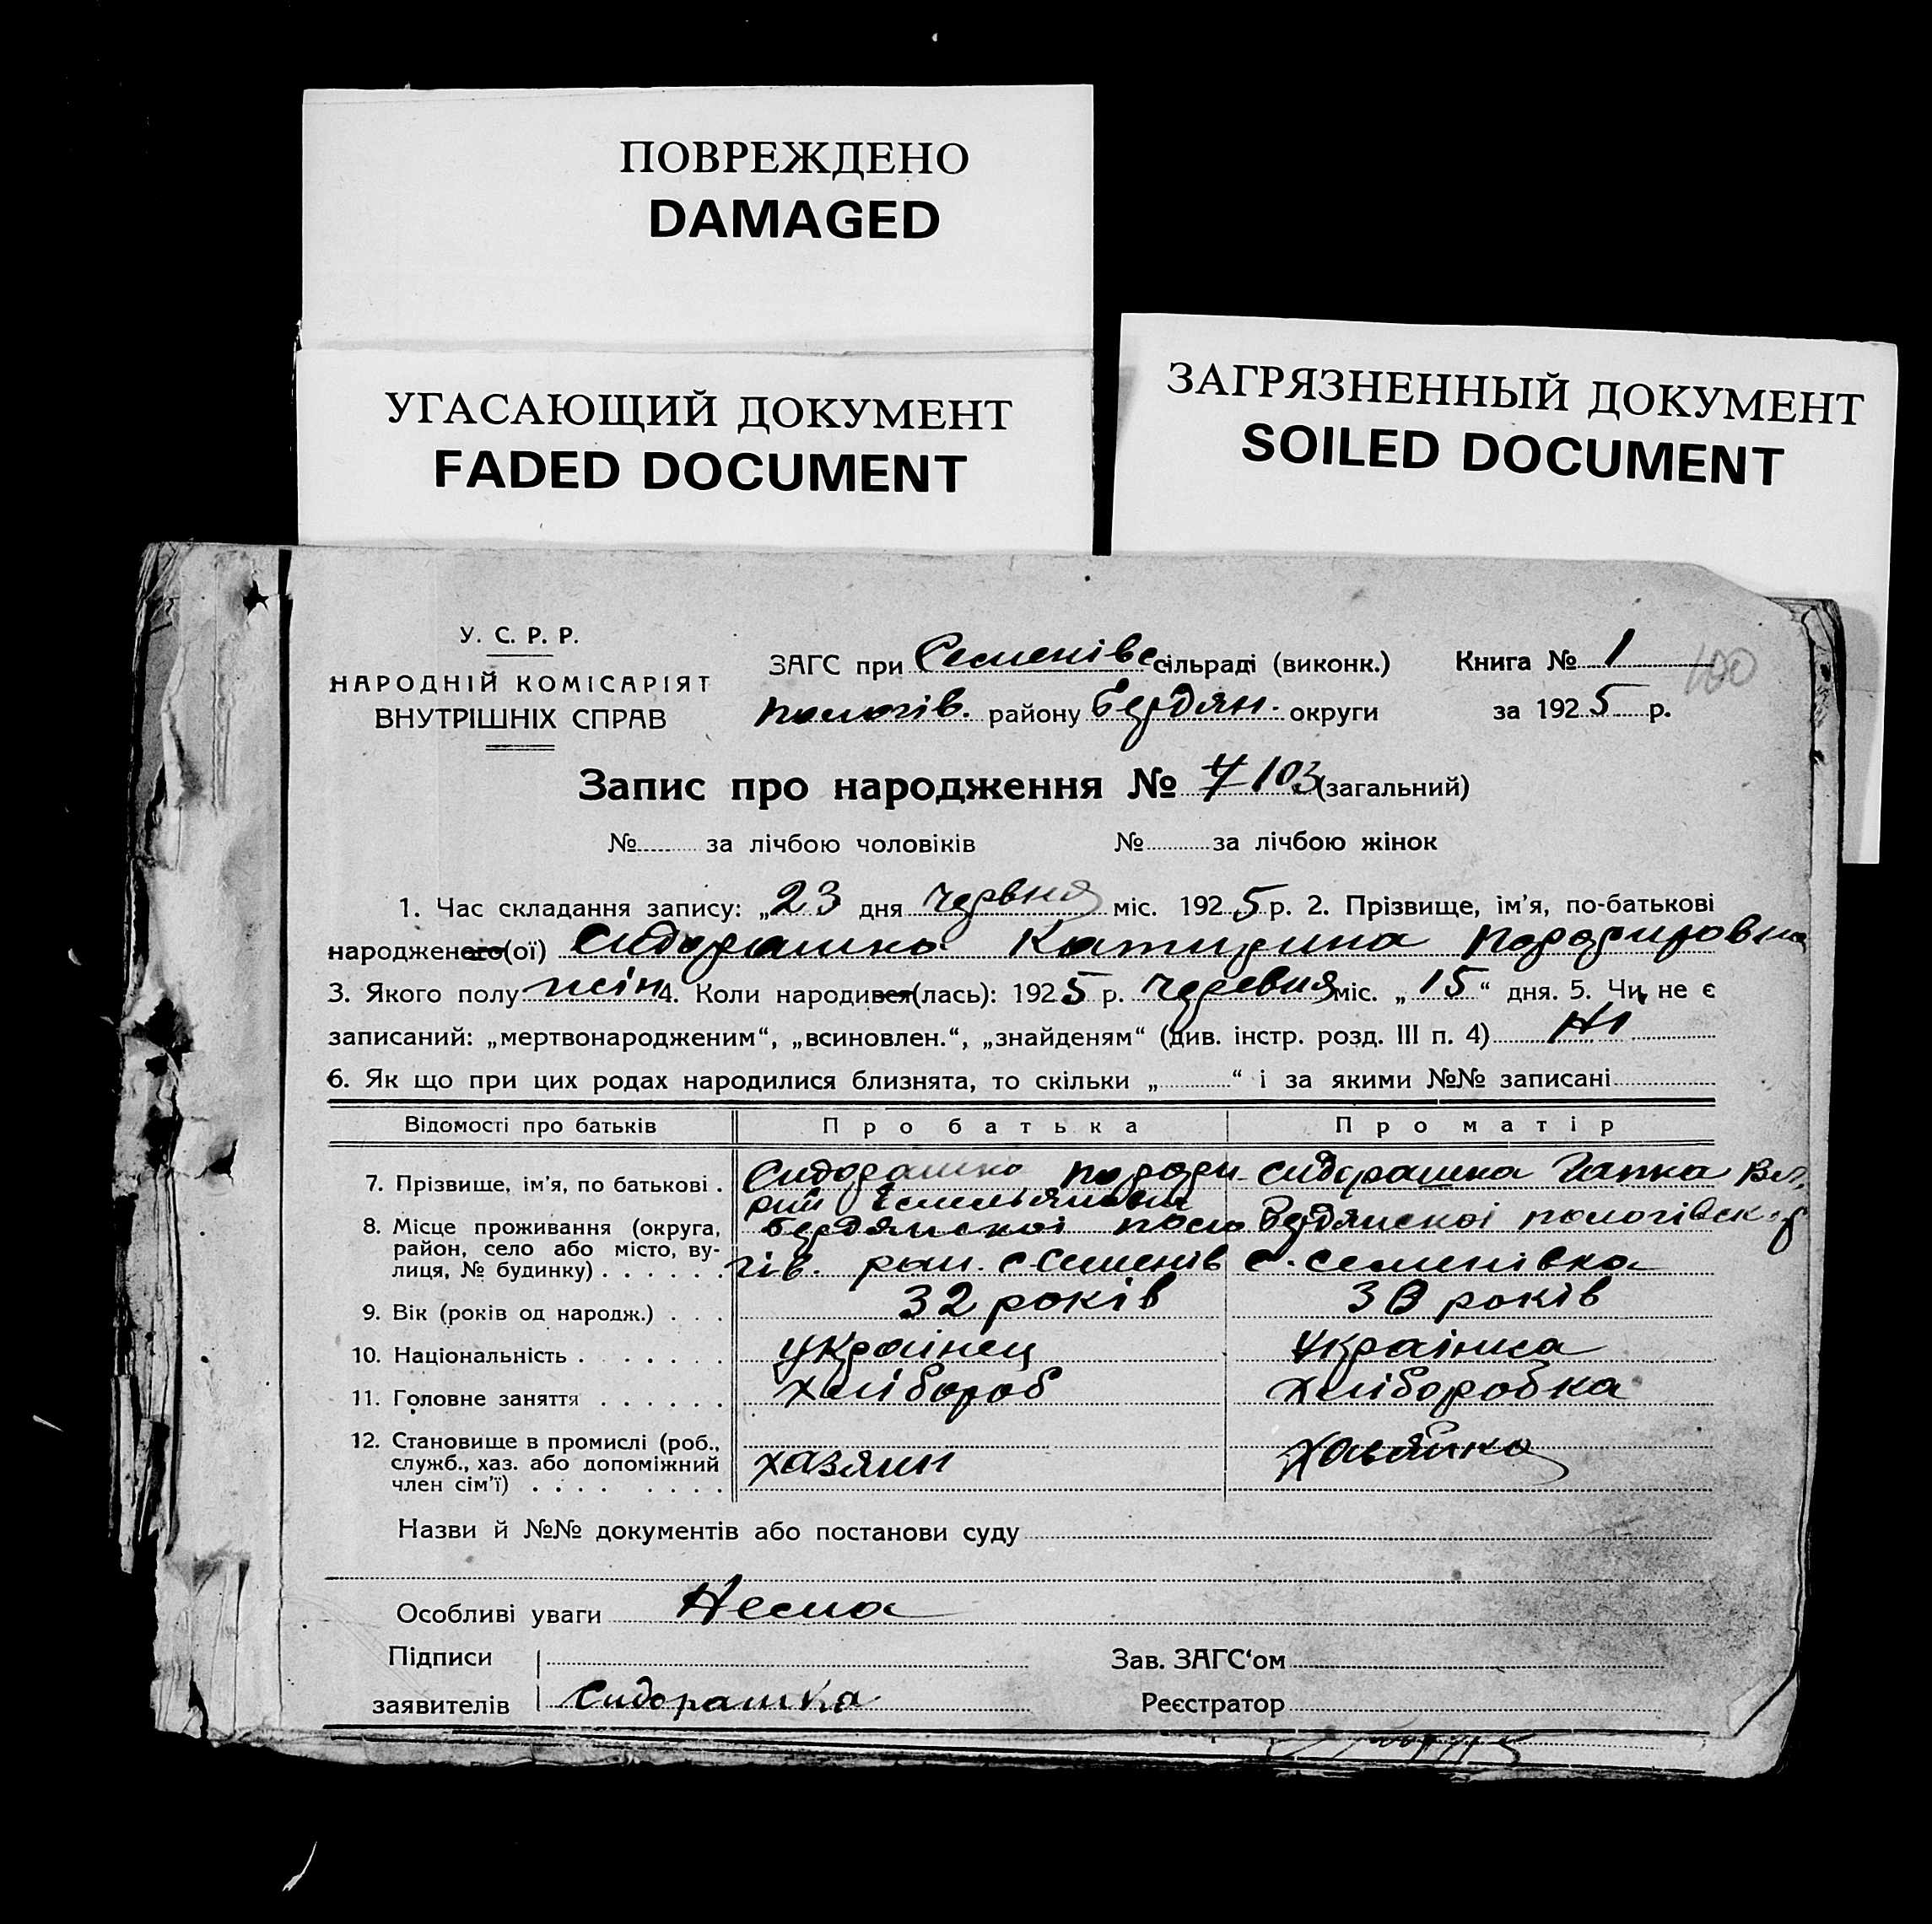 ПОВРЕЖДЕНО
DAMAGED
УГАСАЮЩИЙ ДОКУМЕНТ
FADED DOCUMENT
ЗАГРЯЗНЕННЫЙ ДОКУМЕНТ
SOILED DOCUMENT
У. С. Р. Р.
НАРОДНІЙ КОМІСАРІЯТ
ВНУТРІШНІХ СПРАВ
ЗАГС при Семенівс сільраді (виконк.)
пологів. району Бердян. округи
Книга № 1
100
за 1925 р.
Запис про народження № 7 103 (загальний)
№ за лічбою чоловіків № за лічбою жінок
1. Час складання запису: „23 дня червня міс. 1925 р. 2. Прізвище, ім'я, по-батькові
народженого(ої) Сидорашко Катирина Порфировна
3. Якого полу жін 4. Коли народився(лась): 1925 р. черевня міс. „15“ дня. 5. Чи не є
записаний: „мертвонародженим“, „всиновлен.“, „знайденям“ (див. інстр. розд. III п. 4) Ні
6. Як що при цих родах народилися близнята, то скільки „ “ і за якими №№ записані
Відомості про батьків Про батька Про матір
7. Прізвище, ім'я, по батькові . Сидорашко Порфи- Сидорашка Гапка
рий Емельянови
8. Місце проживання (округа, район, село або місто, вулиця, № будинку) . . . . . . Бердянскоі поло Бердянскоі пологівск
гів. рай. с Семенів с. Семенівка
9. Вік (років од народж.) . . . 32 років 30 років
10. Національність . . . . . . украінец Украінка
11. Головне заняття . . . . . . хлібороб хліборобка
12. Становище в промислі (роб., служб., хаз. або допоміжний член сім'ї) . . . . . . . . хазяин хазяйка
Назви й №№ документів або постанови суду
Особливі уваги Нема
Підписи
заявителів Сидорашка
Зав. ЗАГС'ом
Реєстратор